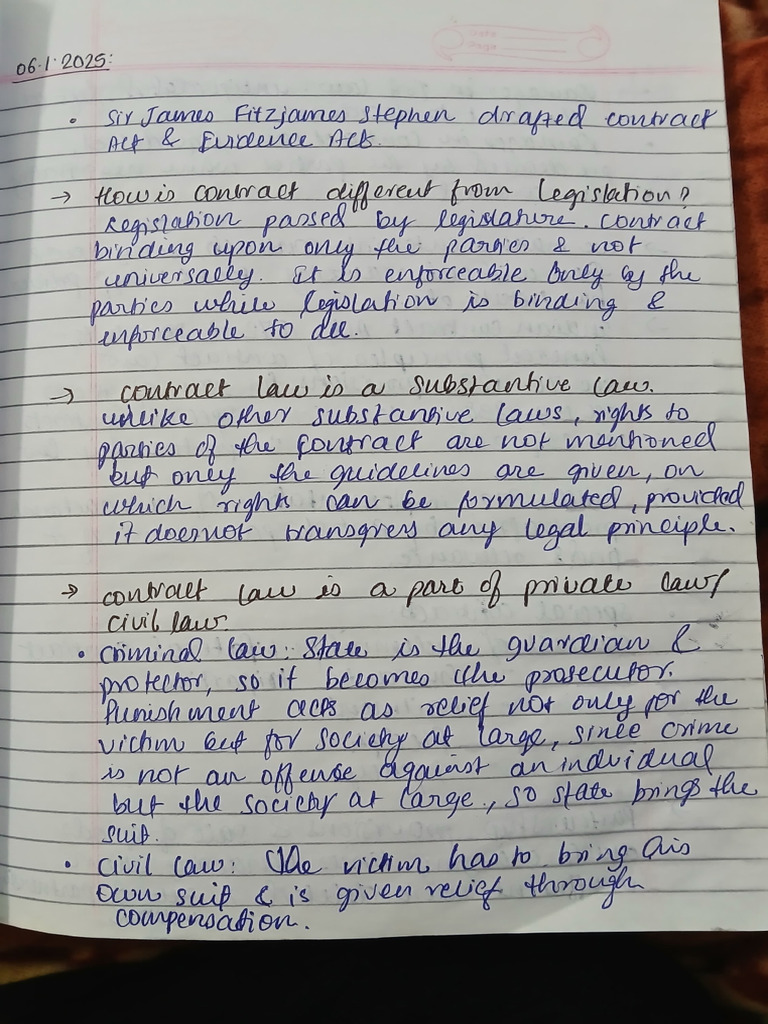 06.1.2025:
• Sir James Fitzjames Stephen drafted contract
Act & Evidence Act.
→ How is contract different from legislation?
Legislation passed by legislature. Contract
binding upon only the parties & not
universally. It is enforceable only by the
parties while legislation is binding &
enforceable to all.
→ contract law is a substantive law.
unlike other substantive laws, rights to
parties of the contract are not mentioned
but only the guidelines are given, on
which rights can be formulated, provided
it doesnot transgress any legal principle.
→ contract law is a part of private law/
civil law.
• Criminal law: State is the guardian &
protector, so it becomes the prosecutor.
Punishment acts as relief not only for the
victim but for society at large, since crime
is not an offense against an individual
but the society at large, so state brings the
suit.
• Civil law: The victim has to bring his
own suit & is given relief through
compensation.